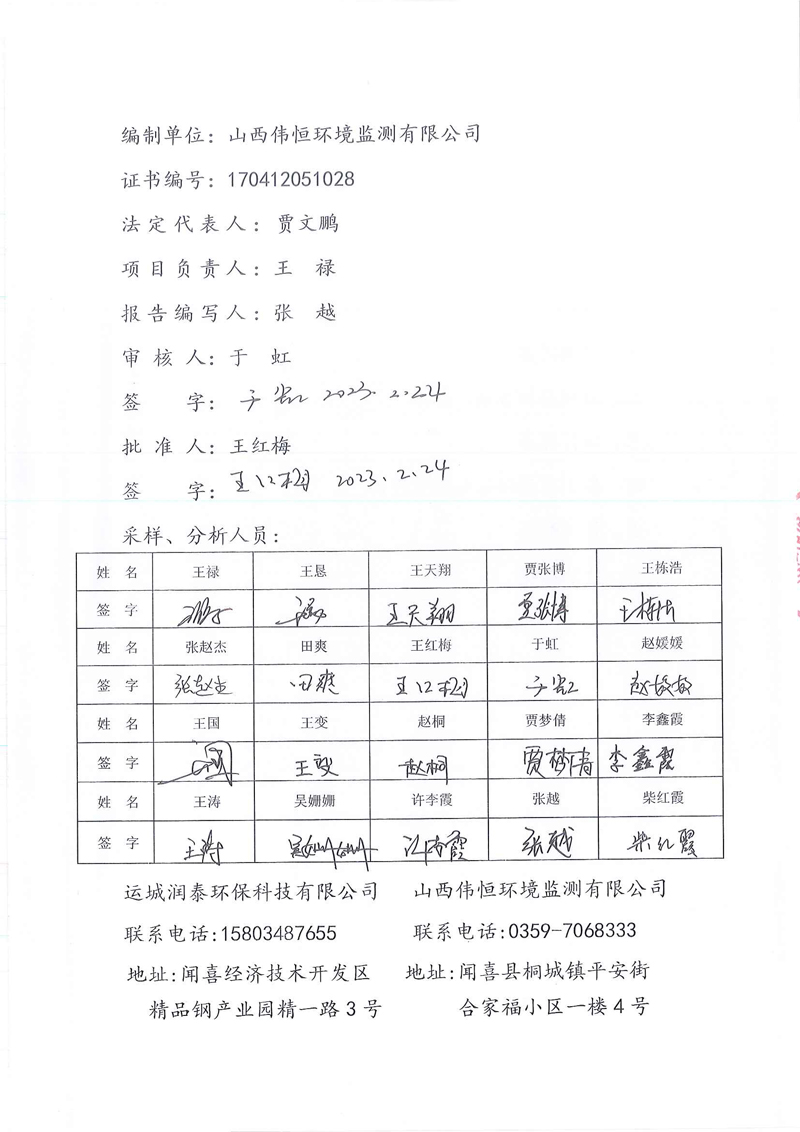 编制单位：山西伟恒环境监测有限公司
证书编号：170412051028
法定代表人：贾文鹏
项目负责人：王 禄
报告编写人：张 越
审核人：于 虹
签 字：于虹 2023.2.24
批准人：王红梅
签 字：王红梅 2023.2.24
采样、分析人员：
姓 名 王禄 王恳 王天翔 贾张博 王栋浩
签 字 王天翔 贾张博 王栋浩
姓 名 张赵杰 田爽 王红梅 于虹 赵媛媛
签 字 张赵杰 田爽 王红梅 于虹 赵媛媛
姓 名 王国 王变 赵桐 贾梦倩 李鑫霞
签 字 王变 赵桐 贾梦倩 李鑫霞
姓 名 王涛 吴姗姗 许李霞 张越 柴红霞
签 字 王涛 吴姗姗 许李霞 张越 柴红霞
运城润泰环保科技有限公司 山西伟恒环境监测有限公司
联系电话:15803487655 联系电话:0359-7068333
地址:闻喜经济技术开发区 地址:闻喜县桐城镇平安街
精品钢产业园精一路3号 合家福小区一楼4号